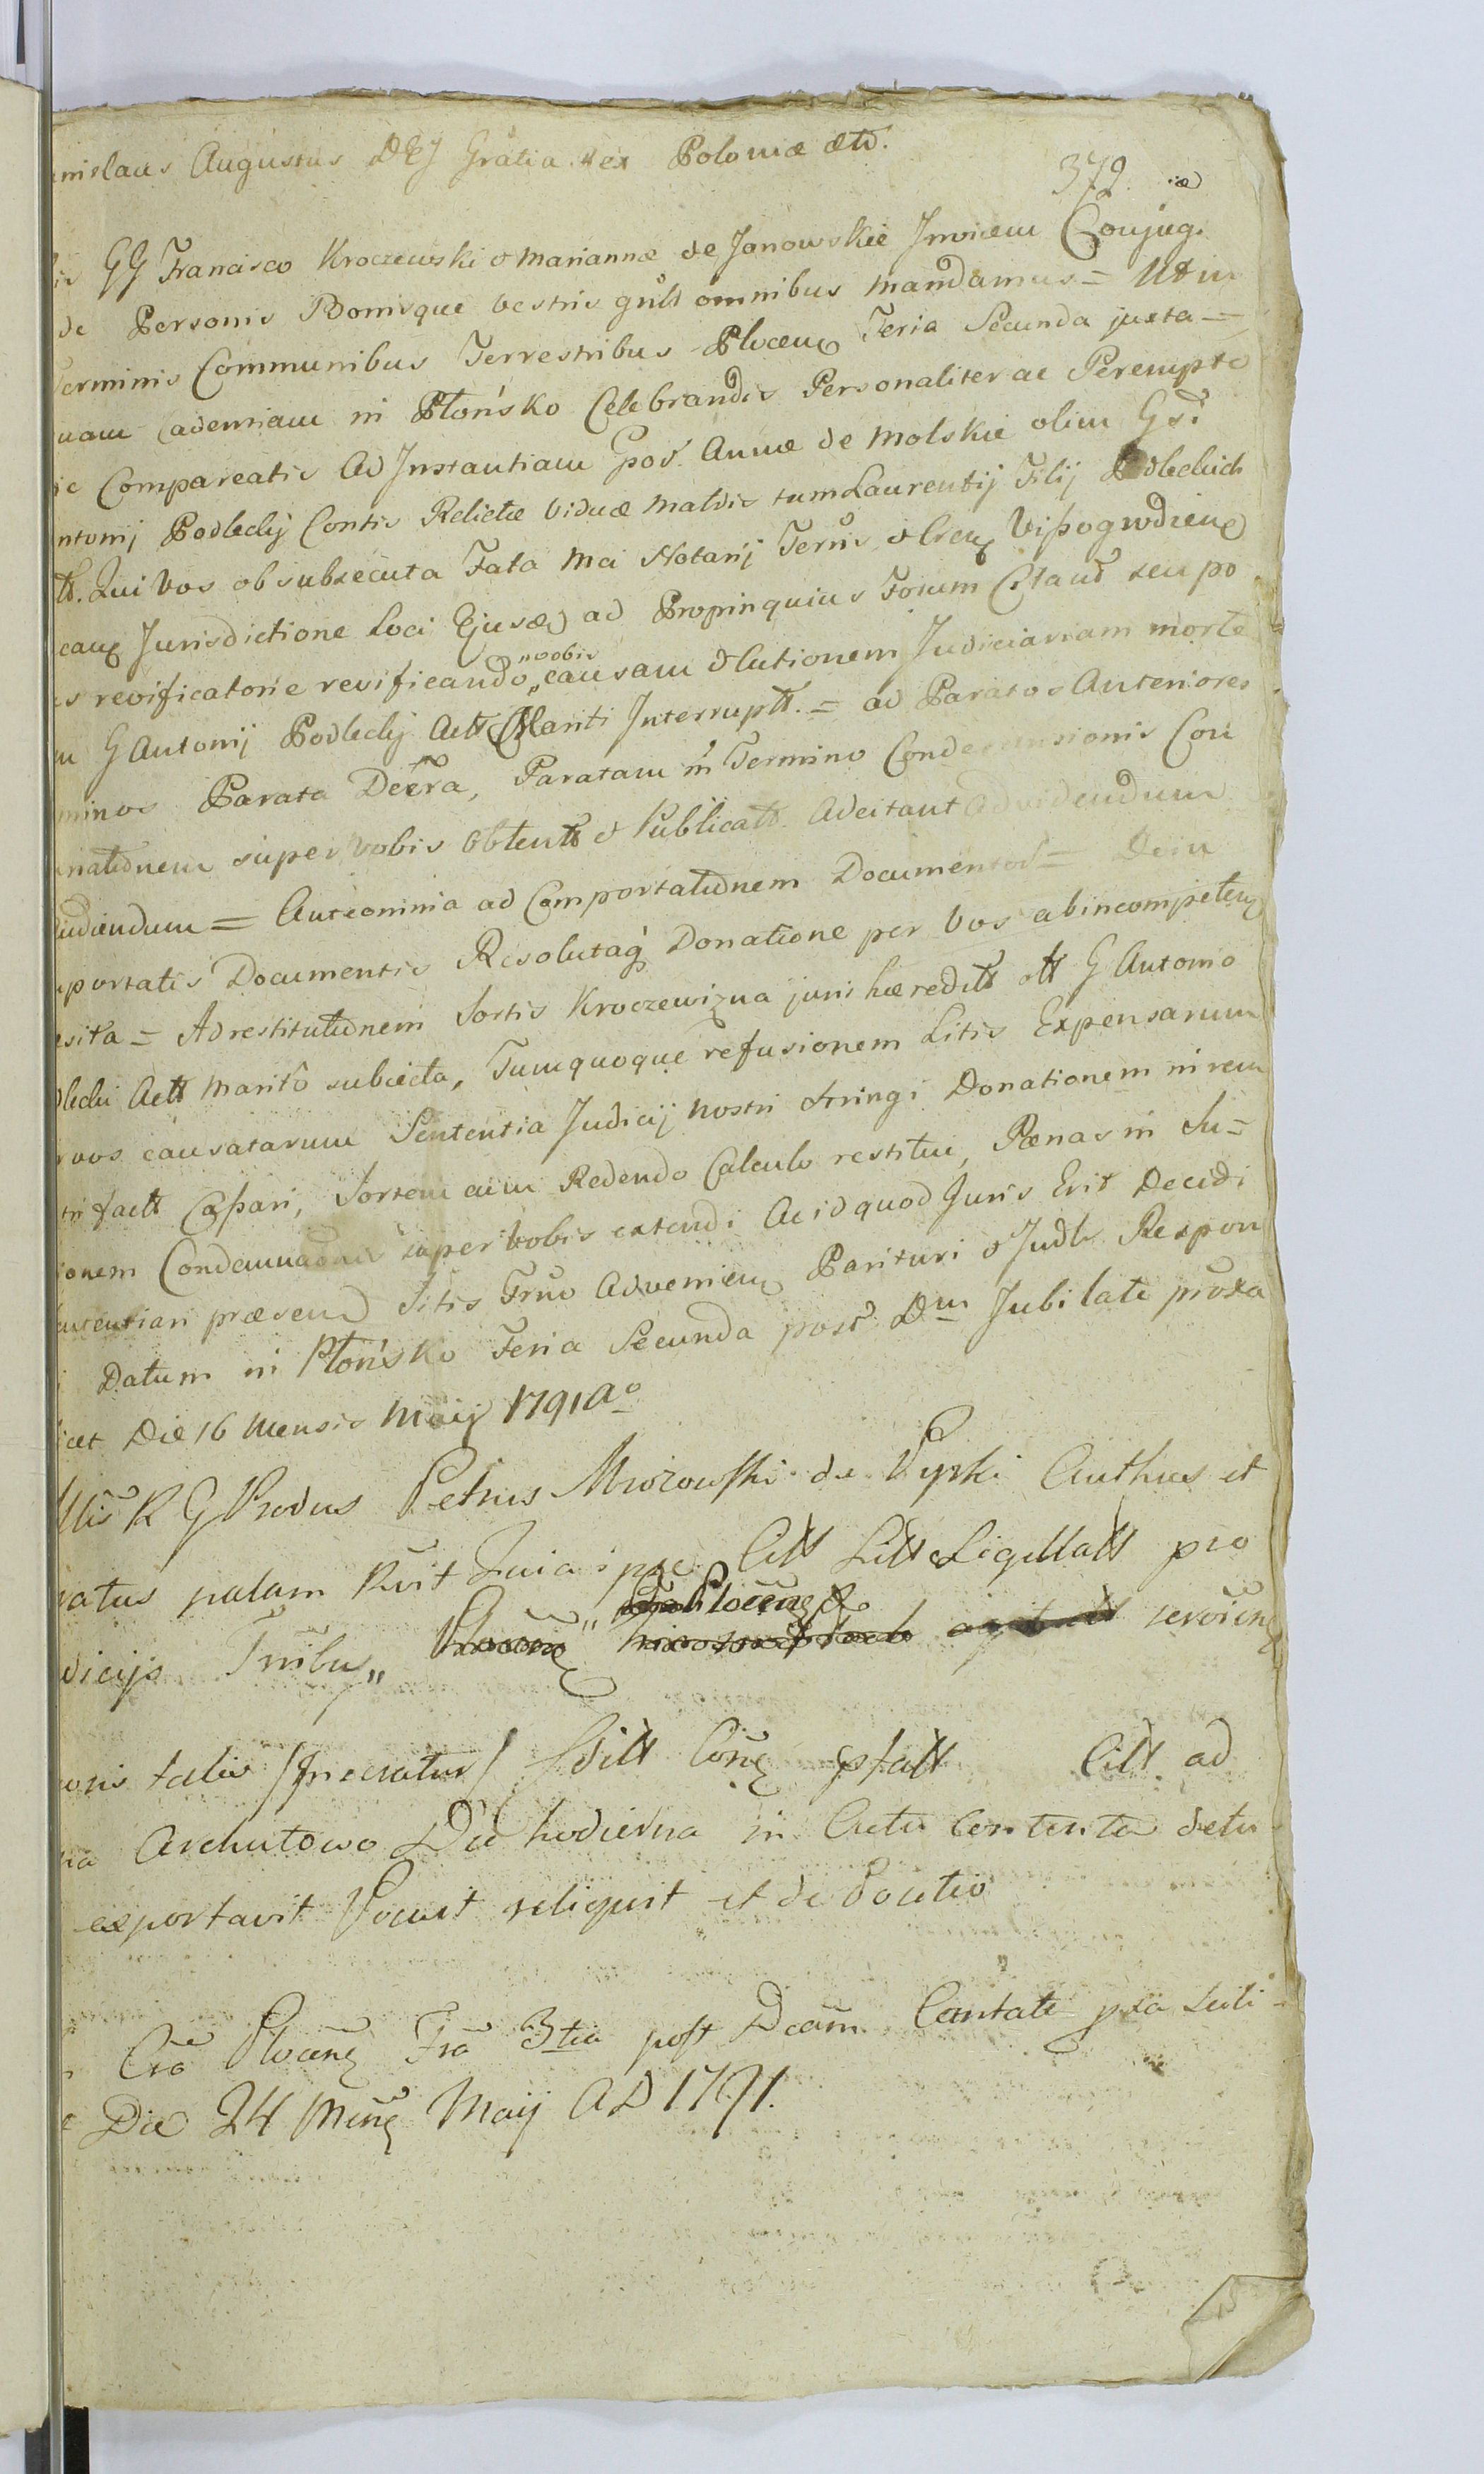 nislaus Augustus DEJ Gratia Rex Poloniæ etc.
372.
GG Francisco Kroczewski & Mariannæ de Janowskie Invicem Conjug.
de Personis Bonisque vestris gnlt omnibus mandamus = Ut in
erminis Communibus Terrestribus Plocen Feria Secunda juxta =
uam Cadentiam in Płońsko Celebrandis Personaliter ac Perempte
Compareatis Ad Instantiam Gos. Annæ de Molskie olim Gsi
ntonij Podleckij Contis Relictæ Viduæ Matris tum Laurentij Filij Podleckich
tt. Qui Vos ob subsecuta Fata Mci Notarij Terris & Cren Vißogrodien
can Jurisdictione Loci Ejusd ad Propinquius Forum Citand seu po
s revificatorie revificando „vobis„ causam & lutionem Judiciariam morte
m G Antonij Podleckij Actt Mariti Interruptt. = ad Paratos Anteriores
minos Parata Decra, Paratam in Termino Condescensionis Con
nationem super vobis Obtentt & Publicatt. Adcitant Ad videndum
udiendum = Anteomnia ad Comportationem Documentor = Dein
portatis Documentis Resolutaq Donatione per Vos ab incompeten
sita = Ad restitutionem Sortis Kroczewizna juris hæreditt ott G Antonio
dlecki Actt Marito subjecta, Tumquoque refusionem Litis Expensarum
vos causatarum Sententia Judicij Nostri stringi Donationem in rem
tri factt Caßari, Sortem cum Redendo Calculo restitui, Pænas in Su=
onem Condemnationis super Vobis extendi Ac id quod Juris Erit Decidi
ententiari præsend Sitis Trno Advenien Parituri & Judlr Respon
Datum in Płońsko Feria Secunda post Dm Jubilate proxa
icet Die 16 Mensis Maij 1791 Ao
R G Produs Petrus Mrozowski de Vyski Authus et
atus palam Rvit Quia ipse Citt Litt Ligillatt pro
dicijs Tribu„ Plocen & servien
onis talis /Inseratur/ Editt Con pfatt Citt ad
na Archutowo Die hodierna in Actu Contenta detu
exportavit Posuit reliquit et de Positio
Cra Plocen Fra 3tia post Dcam Cantate pxa scili
Die 24 Men Maij AD 1791.